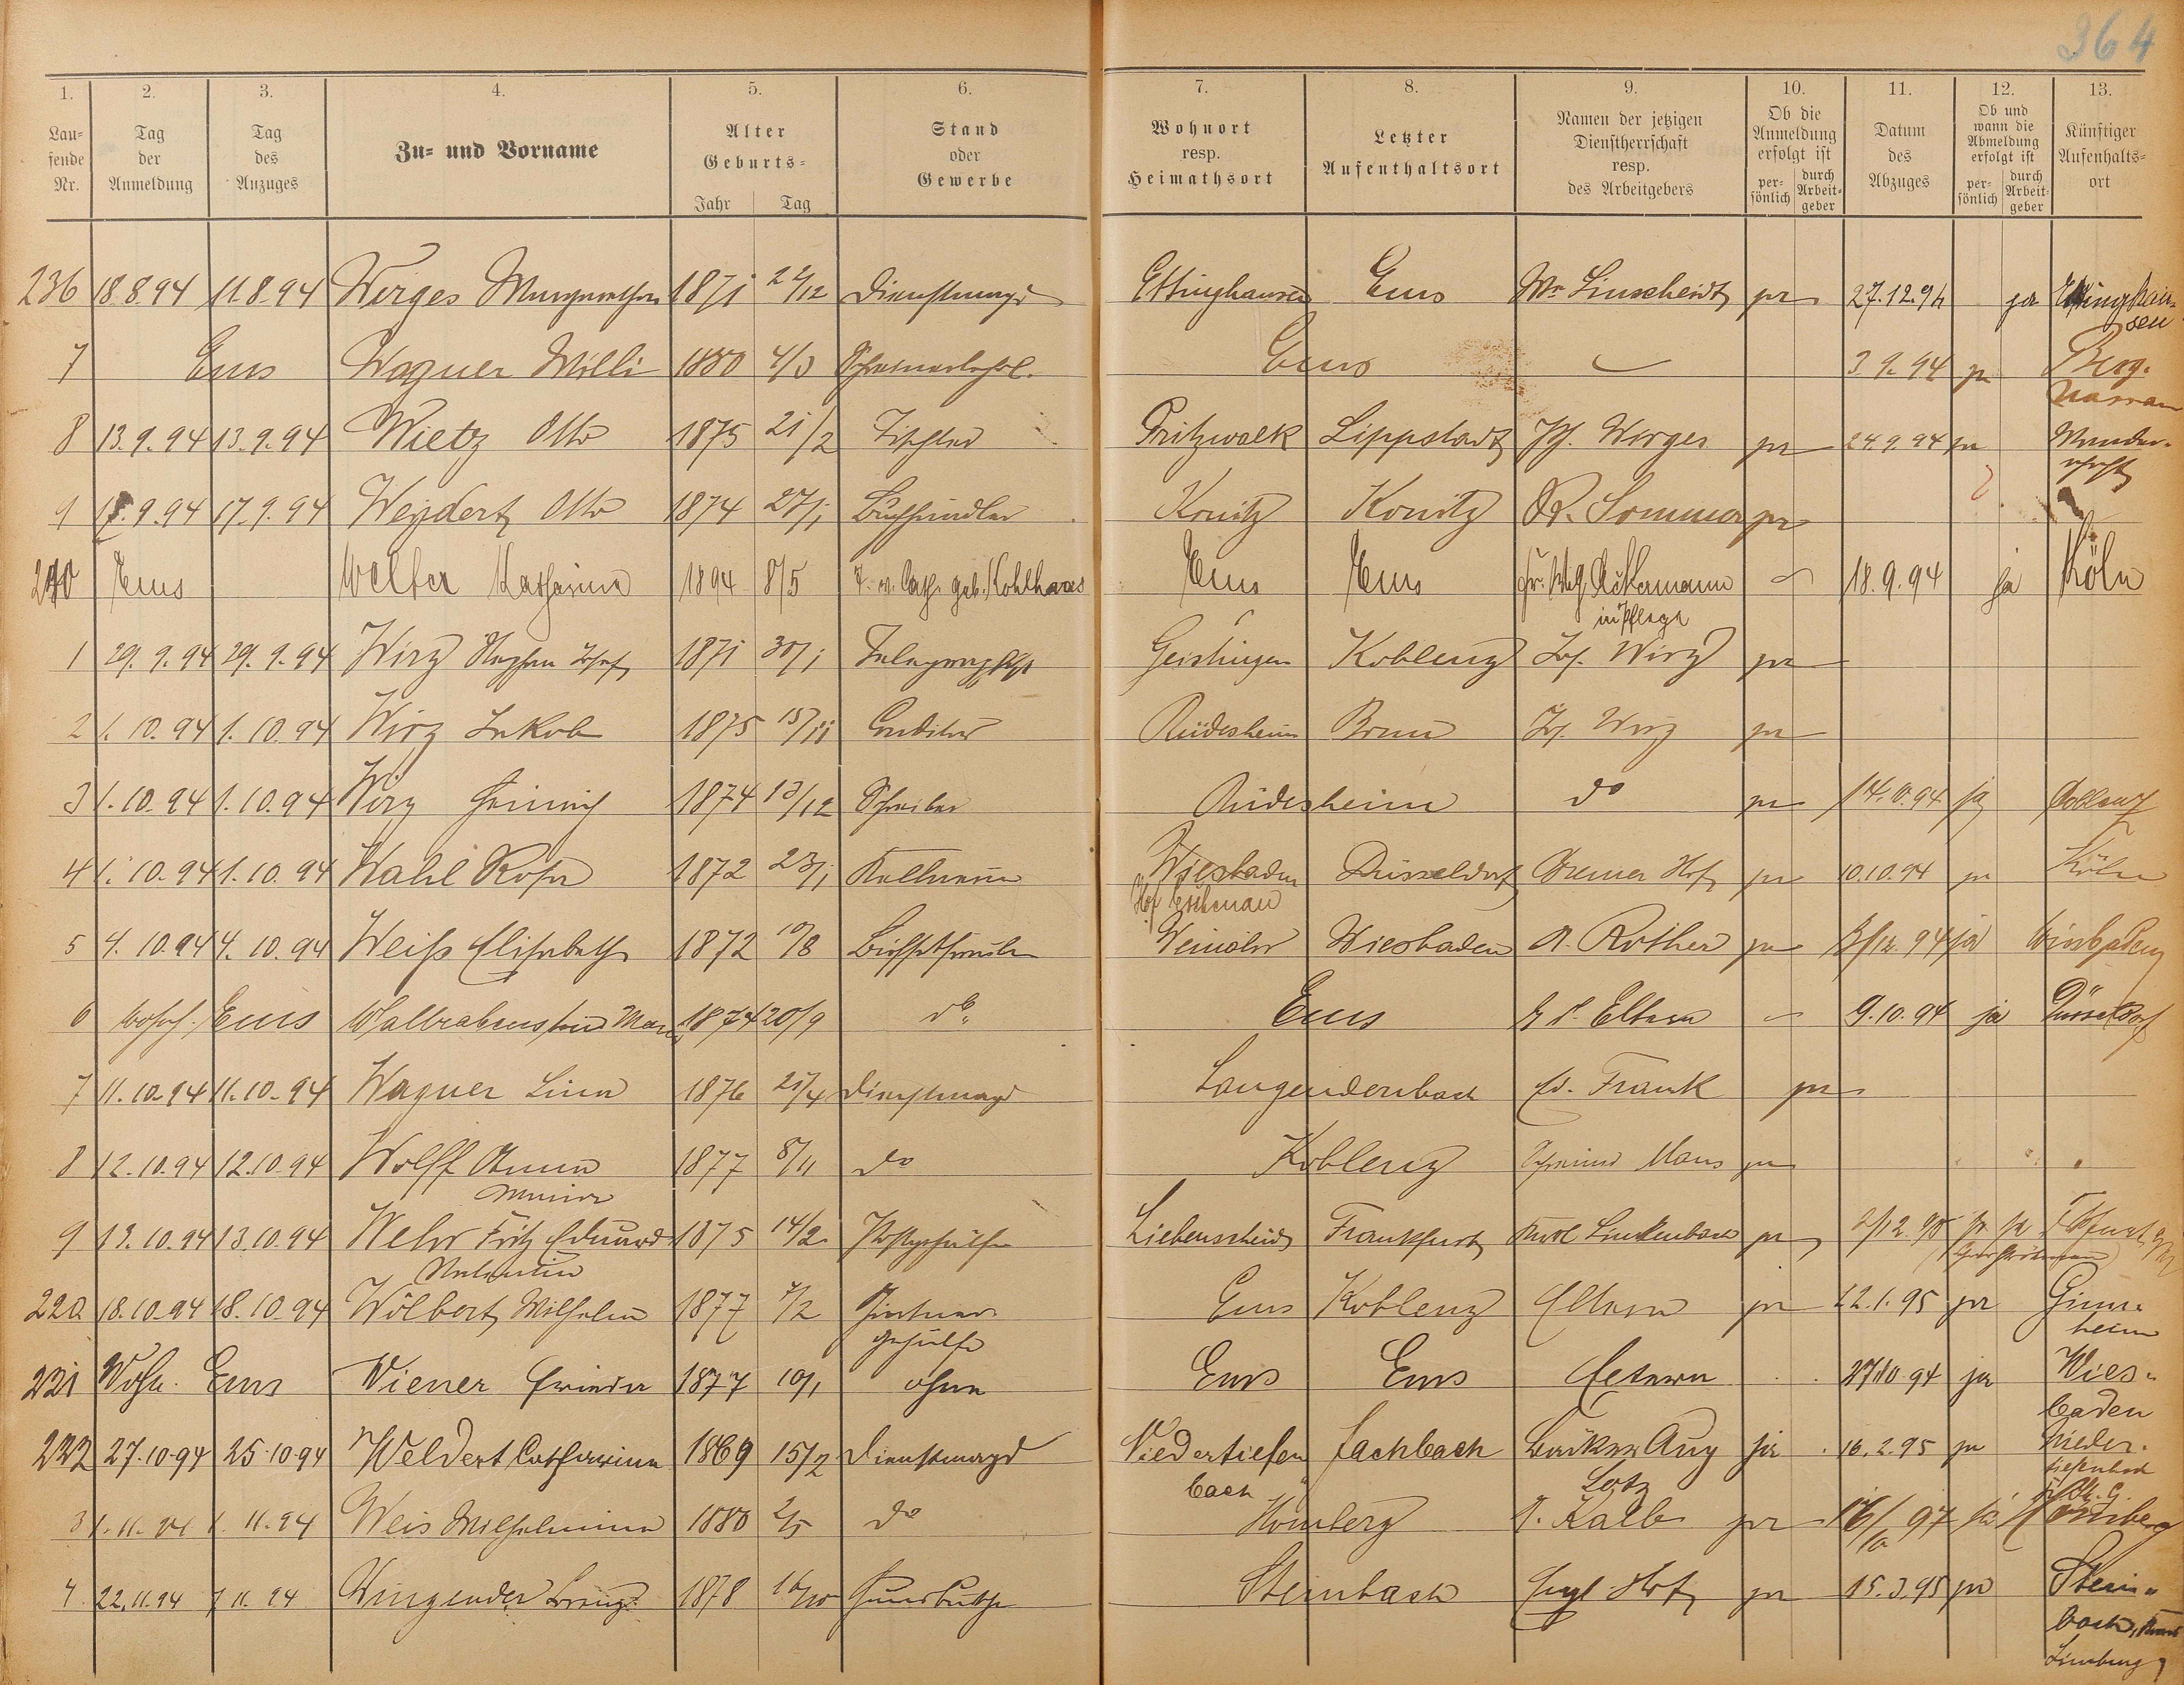 364
1. 2. 3. 4. 5. 6. 7. 8. 9. 10. 11. 12. 13.
Lau=
fende
Nr.
Tag
der
Anmeldung
Tag
des
Anzuges
Zu= und Vorname
Alter
Geburts=
Jahr Tag
Stand
oder
Gewerbe
Wohnort
resp.
Heimathsort
Letzter
Aufenthaltsort
Namen der jetzigen
Dienstherrschaft
resp.
des Arbeitgebers
Ob die
Anmeldung
erfolgt ist
per=
sönlich
durch
Arbeit=
geber
Datum
des
Abzuges
Ob und
wann die
Abmeldung
erfolgt ist
per=
sönlich
durch
Arbeit=
geber
Künftiger
Aufenhalts=
ort
236 18.8.94 11.8.94 Wirges Margaretha 1871 22/12 Dienstmagd Ettinghausen Ems Wr Linscheidt ja 27.12.94 ja Ettinghau=
sen
7 Ems Wagner Willi 1880 4/3 Schreinerlehrl. Ems 3.9.94 ja Berg.
Nassau
8 13.9.94 13.9.94 Wietz Otto 1875 21/2 Tischler Pritzwalk Lippstadt Jos. Wirges ja 24.9.94 ja Wander-
schaft
9 17.9.94 17.9.94 Weydert Otto 1874 27/1 Buchhändler Konitz Konitz R. Sommer ja
240 Ems Welter Katharina 1894 8/5 geb. Kohlhaas Ems Ems Ackermann 18.9.94 ja Köln
in Pflege
1 29.9.94 29.9.94 Wirz Stephan Josef 1871 30/1 Geislingen Koblenz Jos. Wirz ja
2 1.10.94 1.10.94 Wirz Jakob 1875 15/11 Conditor Rüdesheim Bonn Jos. Wirz ja
3 1.10.94 1.10.94 Wirz Heinrich 1874 13/12 Schreiber Rüdesheim do ja 14.10.94 ja Coblenz
4 1.10.94 1.10.94 Wahl Rosa 1872 23/1 Kellnerin Wiesbaden Düsseldorf Bremer Hof ja 10.10.94 ja Köln
5 4.10.94 4.10.94 Weiß Elisabeth 1872 10/8 Weinähr Wiesbaden A. Rother ja 94 ja Wiesbaden
6 Ems Wallrabenstein 1874 20/9 do Ems b. d. Eltern 9.10.94 ja Düsseldorf
7 11.10.94 11.10.94 Wagner Lina 1876 21/4 Dienstmagd Langendernbach Ed. Frank ja
8 12.10.94 12.10.94 Wolff Anna 1877 8/11 do Koblenz Schreiner Maus ja
Maria
9 13.10.94 13.10.94 Wehr Fritz Eduard 1875 14/2 Postgehülfe Liebenscheid Frankfurt Karl Linkenbach ja 2/12.95
Valentin
220 18.10.94 18.10.94 Wölbert Wilhelm 1877 7/2 Gärtner- Ems Koblenz Eltern ja 22.1.95 ja Ginn=
heim
gehülfe
221 Wohn. Ems Wiener Frieda 1877 10/1 ohne Ems Ems Eltern 27.10.94 ja Wies=
baden
222 27.10.94 25.10.94 Weldert Catharina 1869 15/2 Dienstmagd Niedertiefen Fachbach Bäcker Aug ja 16.2.95 ja Nieder=
tiefenbach
bach Lotz
3 1.11.94 1.11.94 Weis Wilhelmina 1880 2/5 do Homberg A. Kalb ja 16/10 97 ja
4 22.11.94 7.11.94 Wingender 1878 16/10 Hausbursche Steinbach Engl. Hof ja 15.3.95 ja Stein=
bach,
Limburg